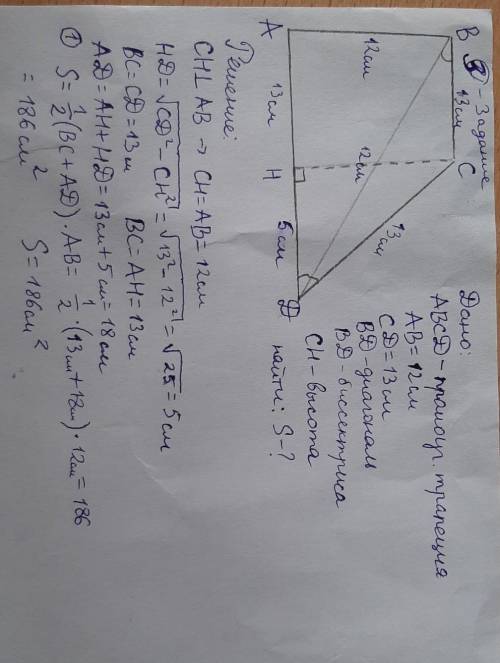 B
5 - Задание
A
C
H
D
12см
13см
13см
12см
13см
5см
Дано:
ABCD - прямоуг. трапеция
AB = 12см
CD = 13см
BD - диагональ
BD - биссектриса
CH - высота
найти: S - ?
Решение:
CH⊥AB → CH = AB = 12см
HD = √CD² - CH² = √13² - 12² = √25 = 5см
BC = CD = 13м BC = AH = 13см
AD = AH + HD = 13см + 5см = 18см
① S = 1/2 (BC + AD) · AB = 1/2 · (13см + 18см) · 12см = 186
= 186см² S = 186см²